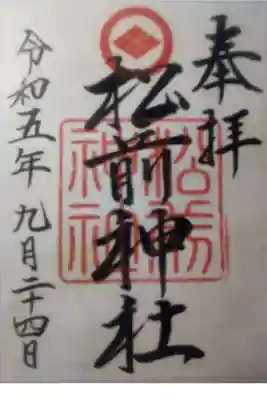 奉拝
松前神社
令和五年九月二十四日